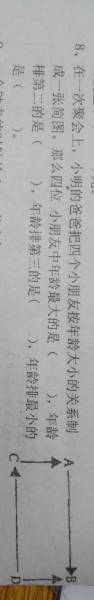 8、在一次聚会上，小明的爸爸把四个小朋友按年龄大小的关系制
成一张简图。那么四位小朋友中年龄最大的是（ ），年龄
排第二的是（ ），年龄排第三的是（ ），年龄排最小的
是（ ）。
A B
C D